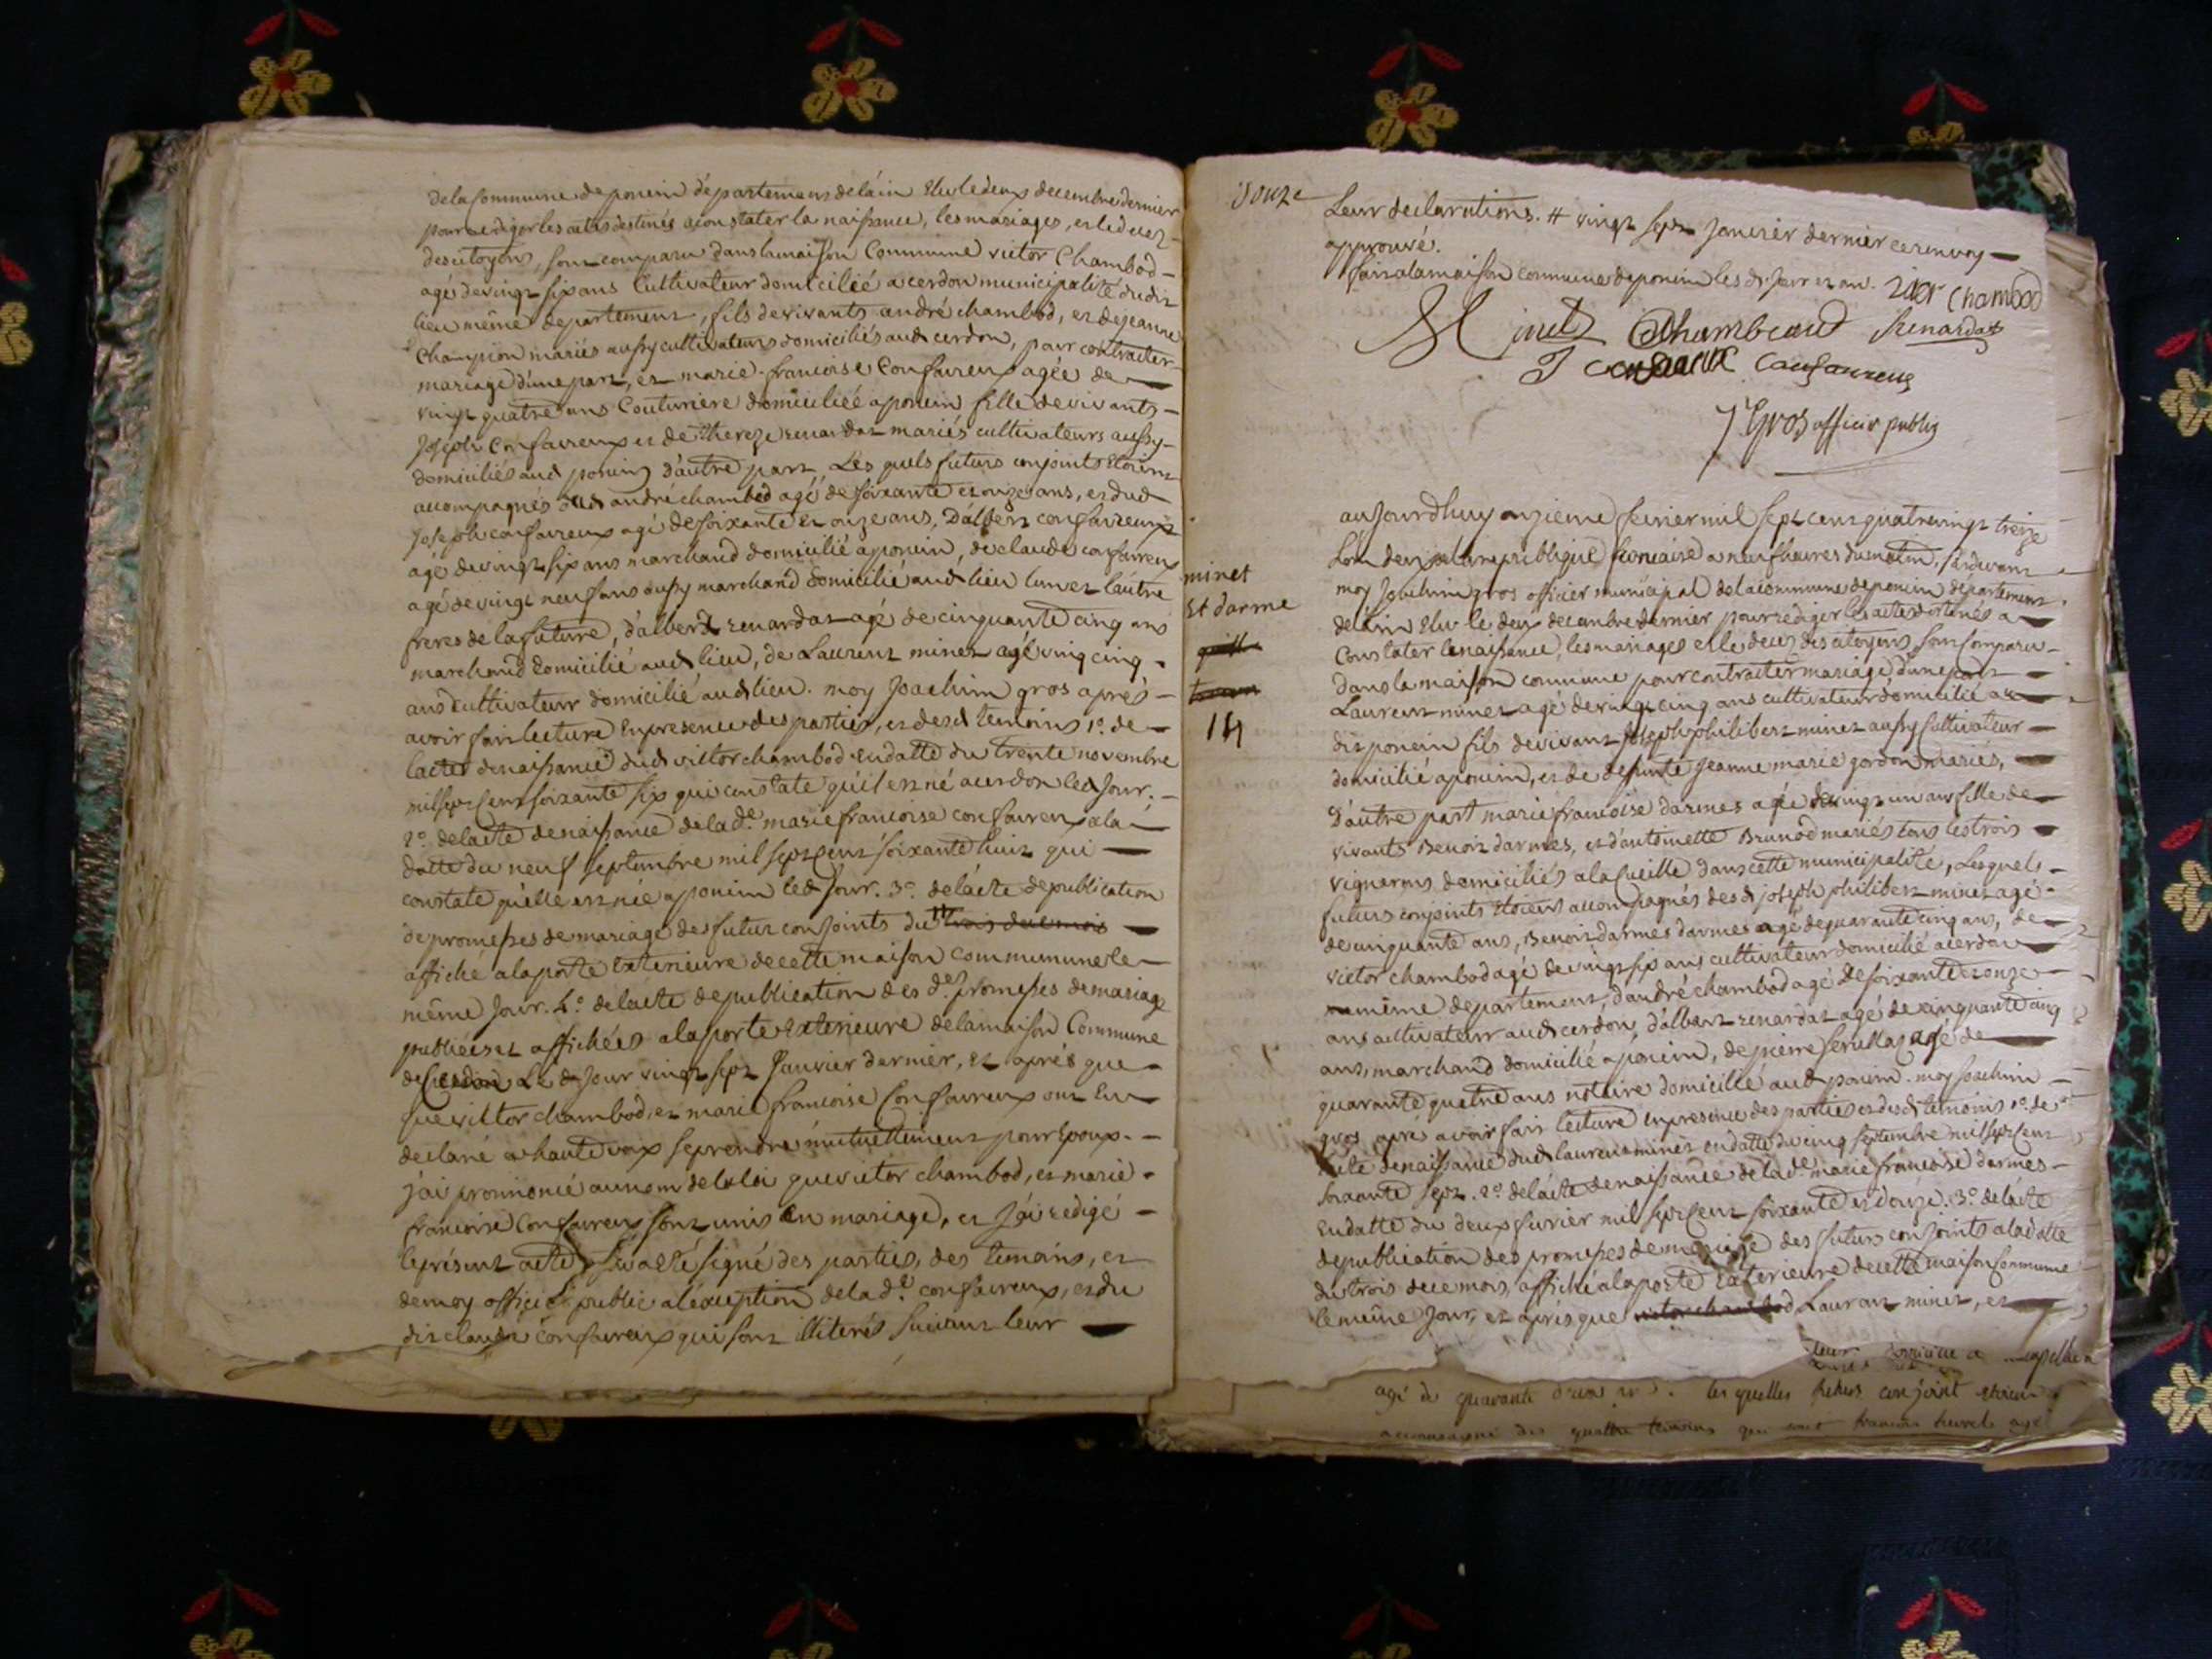 de la Commune de poncin departement de láin Elu le deux decembre dernier
pour rediger les actes destinés a constater la naissance, les mariages, et le decez
des citoyens, sont comparu dans la maison Commune victor Chambod
agé de vingt six ans Cultivateur domicilié a cerdon municipalité dudit
lieu même departement, fils de vivants andré chambod, et de jeanne
Champion mariés aussy cultivateurs domiciliés aud cerdon, pour contracter
mariage d'une part, et marie francoise Confaireux agée de
vingt quatre ans Couturiere domiciliée a poncin fille de vivants
Joseph Confaireux et de Thereze renardat mariés cultivateurs aussy
domiciliés aud poncin d'autre part, Les quels futurs conjoints Etoient
accompagnés dud andré chambod agé de soixante et onze ans, et dud
Joseph confaireux agé de soixante et onze ans, D'albert confaireux
agé de vingt six ans marchand domicilié a poncin, de claude confaireux
agé de vingt neuf ans aussy marchand domicilié aud lieu l'un et l'autre
freres de la future, d'albert renardat agé de cinquante cinq ans
marchand domicilié aud lieu, de Laurent minet agé vingt cinq
ans Cultivateur domicilié aud lieu. moy Joachim gros aprés
avoir fait lecture En presence des parties, et desd temoins 1º. de
lacte de naissance dud victor chambod en datte du trente novembre
mil sept cent soixante six qui constate qu'il est né a cerdon led Jour.
2º delacte de naissance de lad.e marie francoise confaireux a la
datte du neuf septembre mil sept cent soixante huit qui
constate quélle est née a poncin led Jour. 3º delácte de publication
de promesses de mariage des futurs conjoints du # trois de ce mois
affiché a la porte Exterieure de cette maison commumune le
même Jour. 4º. delácte de publication des d.es promesses de mariage
publiées et affichées a la porte exterieure de la maison Commune
de Cerdon Le d Jour vingt sept Janvier dernier, et aprés que
que victor chambod, et marie francoise Confaireux ont Eu
declaré a haute voix se prendre mutuellement pour Epoux.
j'ai prononcé au nom de la loi que victor chambod, et marie
francoise Confaireux sont unis en mariage, et j'ái redigé
le présent acte qui a été signé des parties, des temoins, et
de moy officier public a léxception de lad.e confaireux, et du
dit claude confaireux qui sont illiterés suivant leur
douze
Leur declarations. # vingt sept Janvier dernier ce renvoy
approuvé.
fait a la maison commune de poncin les dt Jour et an.
victor chambod
Minet Chambeaud Renardat
J confaireux Confaureux
J Gros officier public
minet
Et darme
14
aujourdhuy onzieme fevrier mil sept cent quatre vingt treize
L'an deux de la republique francaise a neuf heures du matin, pardevant
moy Joachim gros officier municipal de la commune de poncin departement
de láin Elu le deux decembre dernier pour rediger les actes destinés a
Constater la naissance, les mariages et le decez des citoyens sont comparu
dans la maison commune pour contracter mariage d'une part
Laurent minet agé de vingt cinq ans cultivateur domicilié au
dit poncin fils de vivant Joseph philibert minet aussy Cultivateur
domicilié a poncin, et de defunte Jeanne marie gordon mariés,
D'autre part marie francoise darmes agée de vingt un ans fille de
vivants Benoit darmes, et d'antoinette Brunod mariés tous les trois
vignerons domiciliés a la Cueille dans cette municipalité, Lesquels
futurs conjoints Etoient accompagnés des d joseph philibert minet agé
de cinquante ans, Benoit darmes darmes agé de quarante cinq ans, de
victor chambod agé de vingt six ans cultivateur domicilié a cerdon
même departement, d'andré chambod agé de soixante et onze
ans cultivateur aud cerdon, d'albert renardat agé de cinquante cinq
ans, marchand domicilié a poncin, de pierre serullaz agé de
quarante quatre ans notaire domicilié aud poncin. moy Joachim
gros aprés avoir fait lecture En presence des parties et desd temoins 1º. de
lácte de naissance dud laurent minet en datte du cinq septembre mil sept cent
soixante sept. 2º. delácte de naissance de lad.e marie francoise darmes
en datte du deux fevrier mil sept cent soixante et douze. 3º. delácte
de publication des promesses de mariage des futurs conjoints a la datte
du trois de ce mois, affiché a la porte Exterieure de cette maison Commune
le même Jour, et aprés que victor chambod Laurant minet, et
agé de quarante ans. les quelles futurs conjoint etoien
accompagné des quattre temoins qui sont francois agé